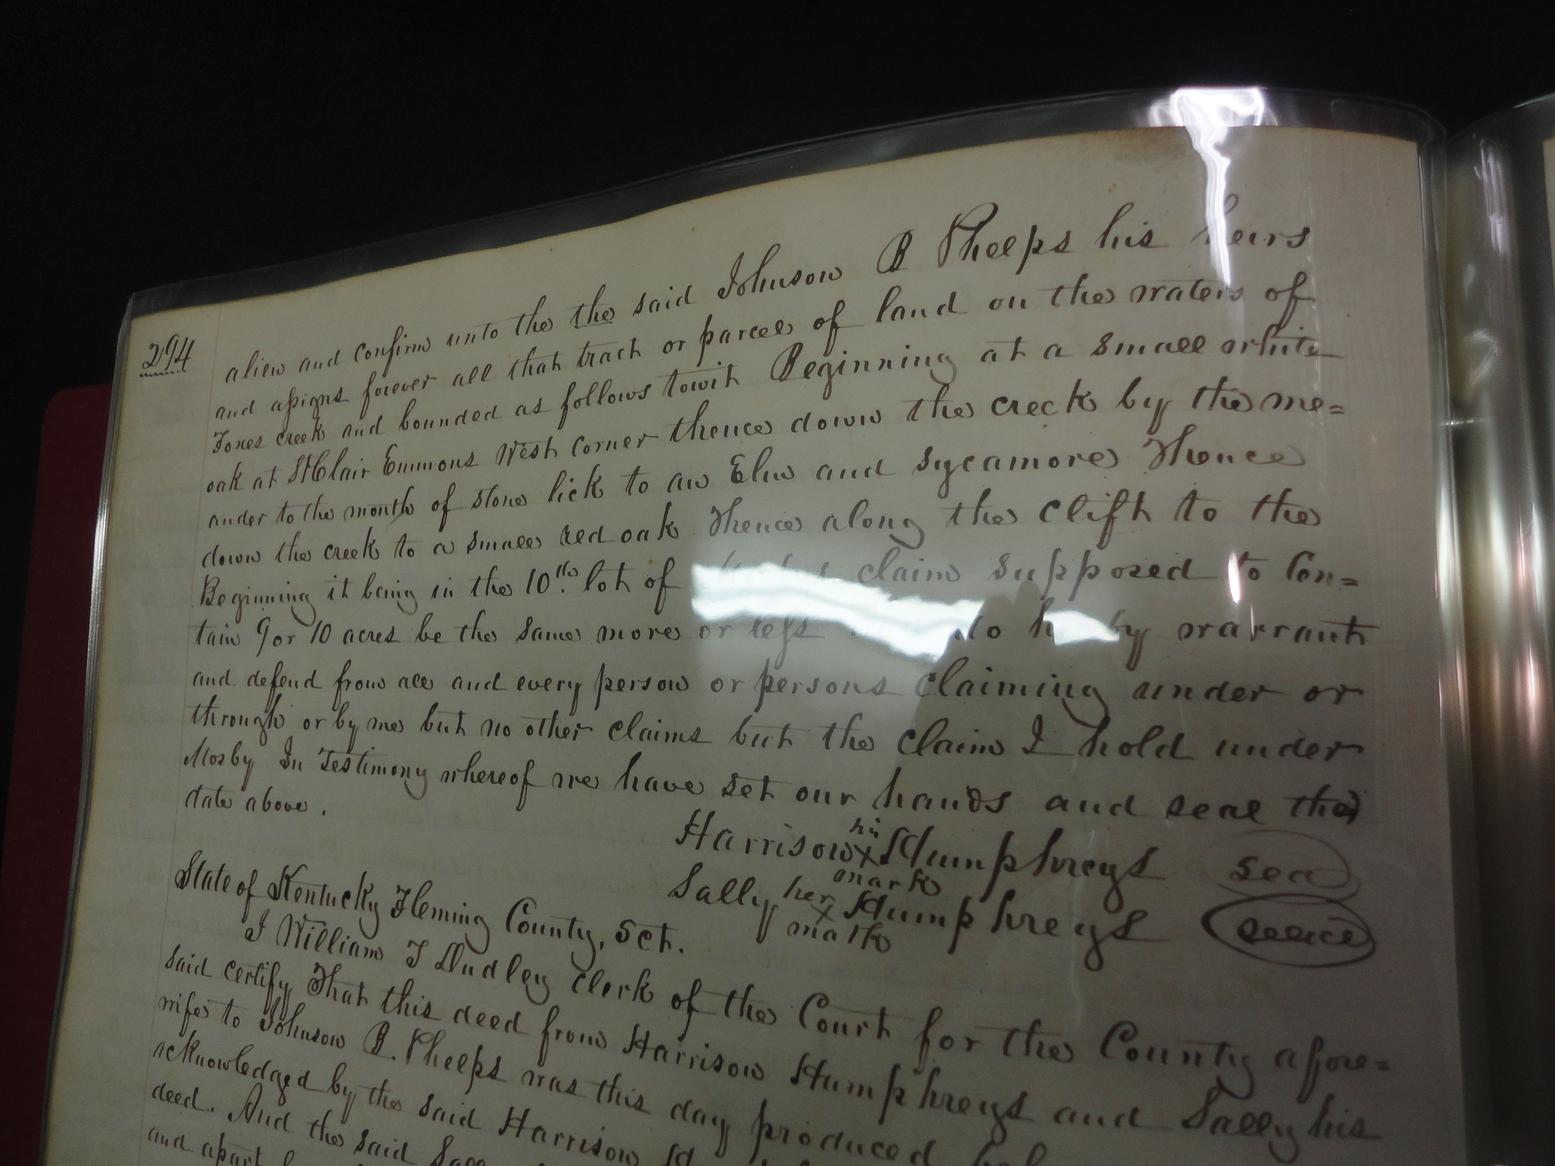 294
alien and confirm unto the the said Johnson B Phelps his heirs
and assigns forever all that tract or parcel of land on the waters of
Foxes creek and bounded as follows towit Beginning at a small white
oak at StClair Emmons West corner thence down the creek by the me=
ander to the mouth of stone lick to an Elm and sycamore Thence
down the creek to a small red oak Thence along the clift to the
Beginning it being in the 10th lot of claim supposed to Con=
tain 9 or 10 acres be the same more or less do by warrant
and defend from all and every person or persons claiming under or
through or by me but no other claims but the claim I hold under
Mosby In Testimony whereof we have set our hands and seal the
date above.
Harrison his x mark Humphreys seal
Sally her x mark Humphreys seal
State of Kentucky Fleming County, Sct.
I William T Dudley Clerk of the Court for the County afore=
said certify That this deed from Harrison Humphreys and Sally his
wife to Johnson B. Phelps was this day produced
acknowledged by the said Harrison
deed. And the said
and apart